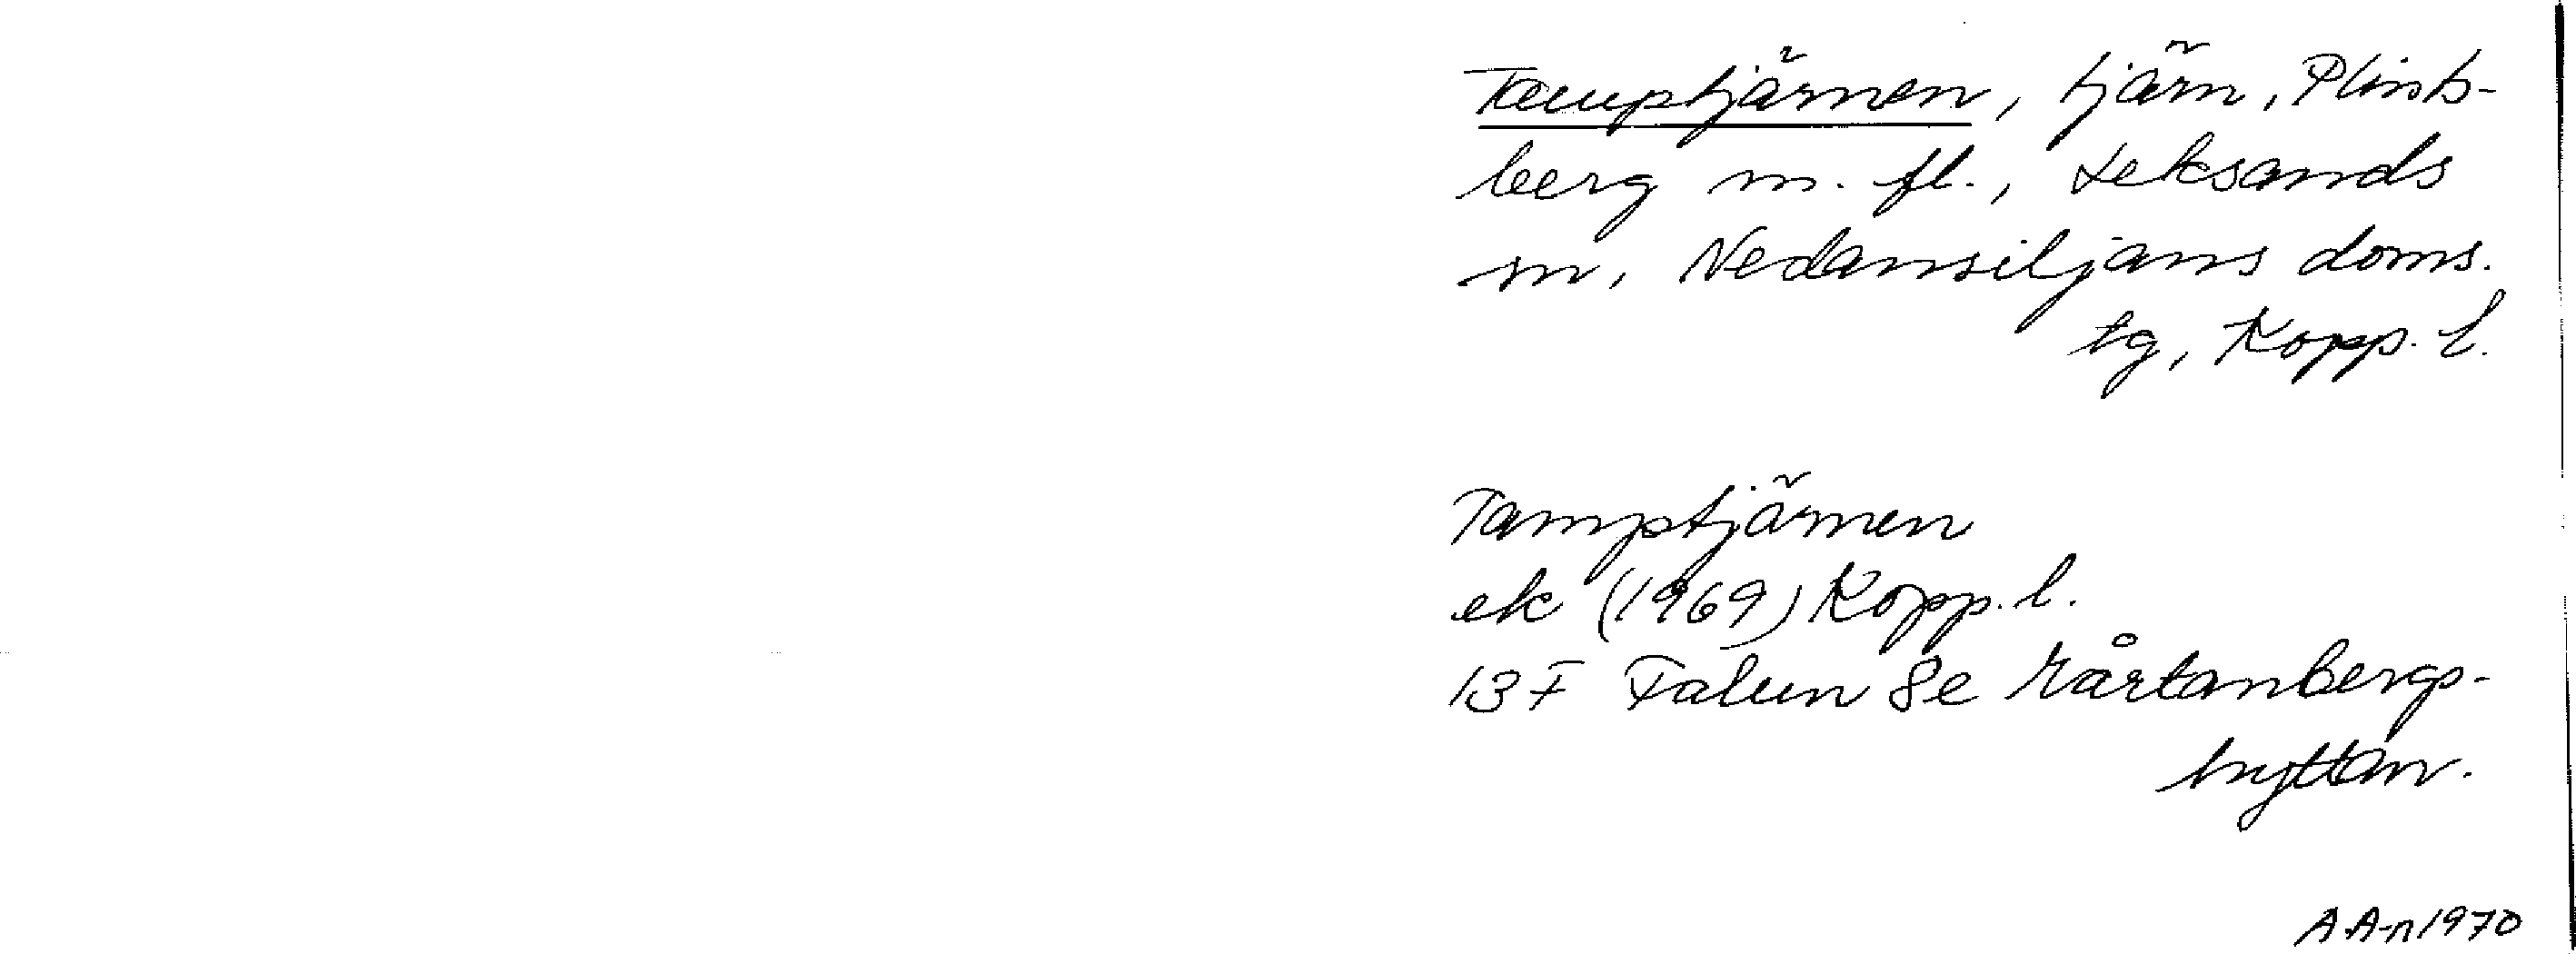 Tamptjärnen, tjärn, Plints-
berg m. fl., Leksands
sn, Nedansiljans doms.
tg, Kopp. l.
Tamptjärnen
ek (1969) Kopp. l.
13 F Falun 8e Mårtanbergs-
hyttan.
A.A-n 1970